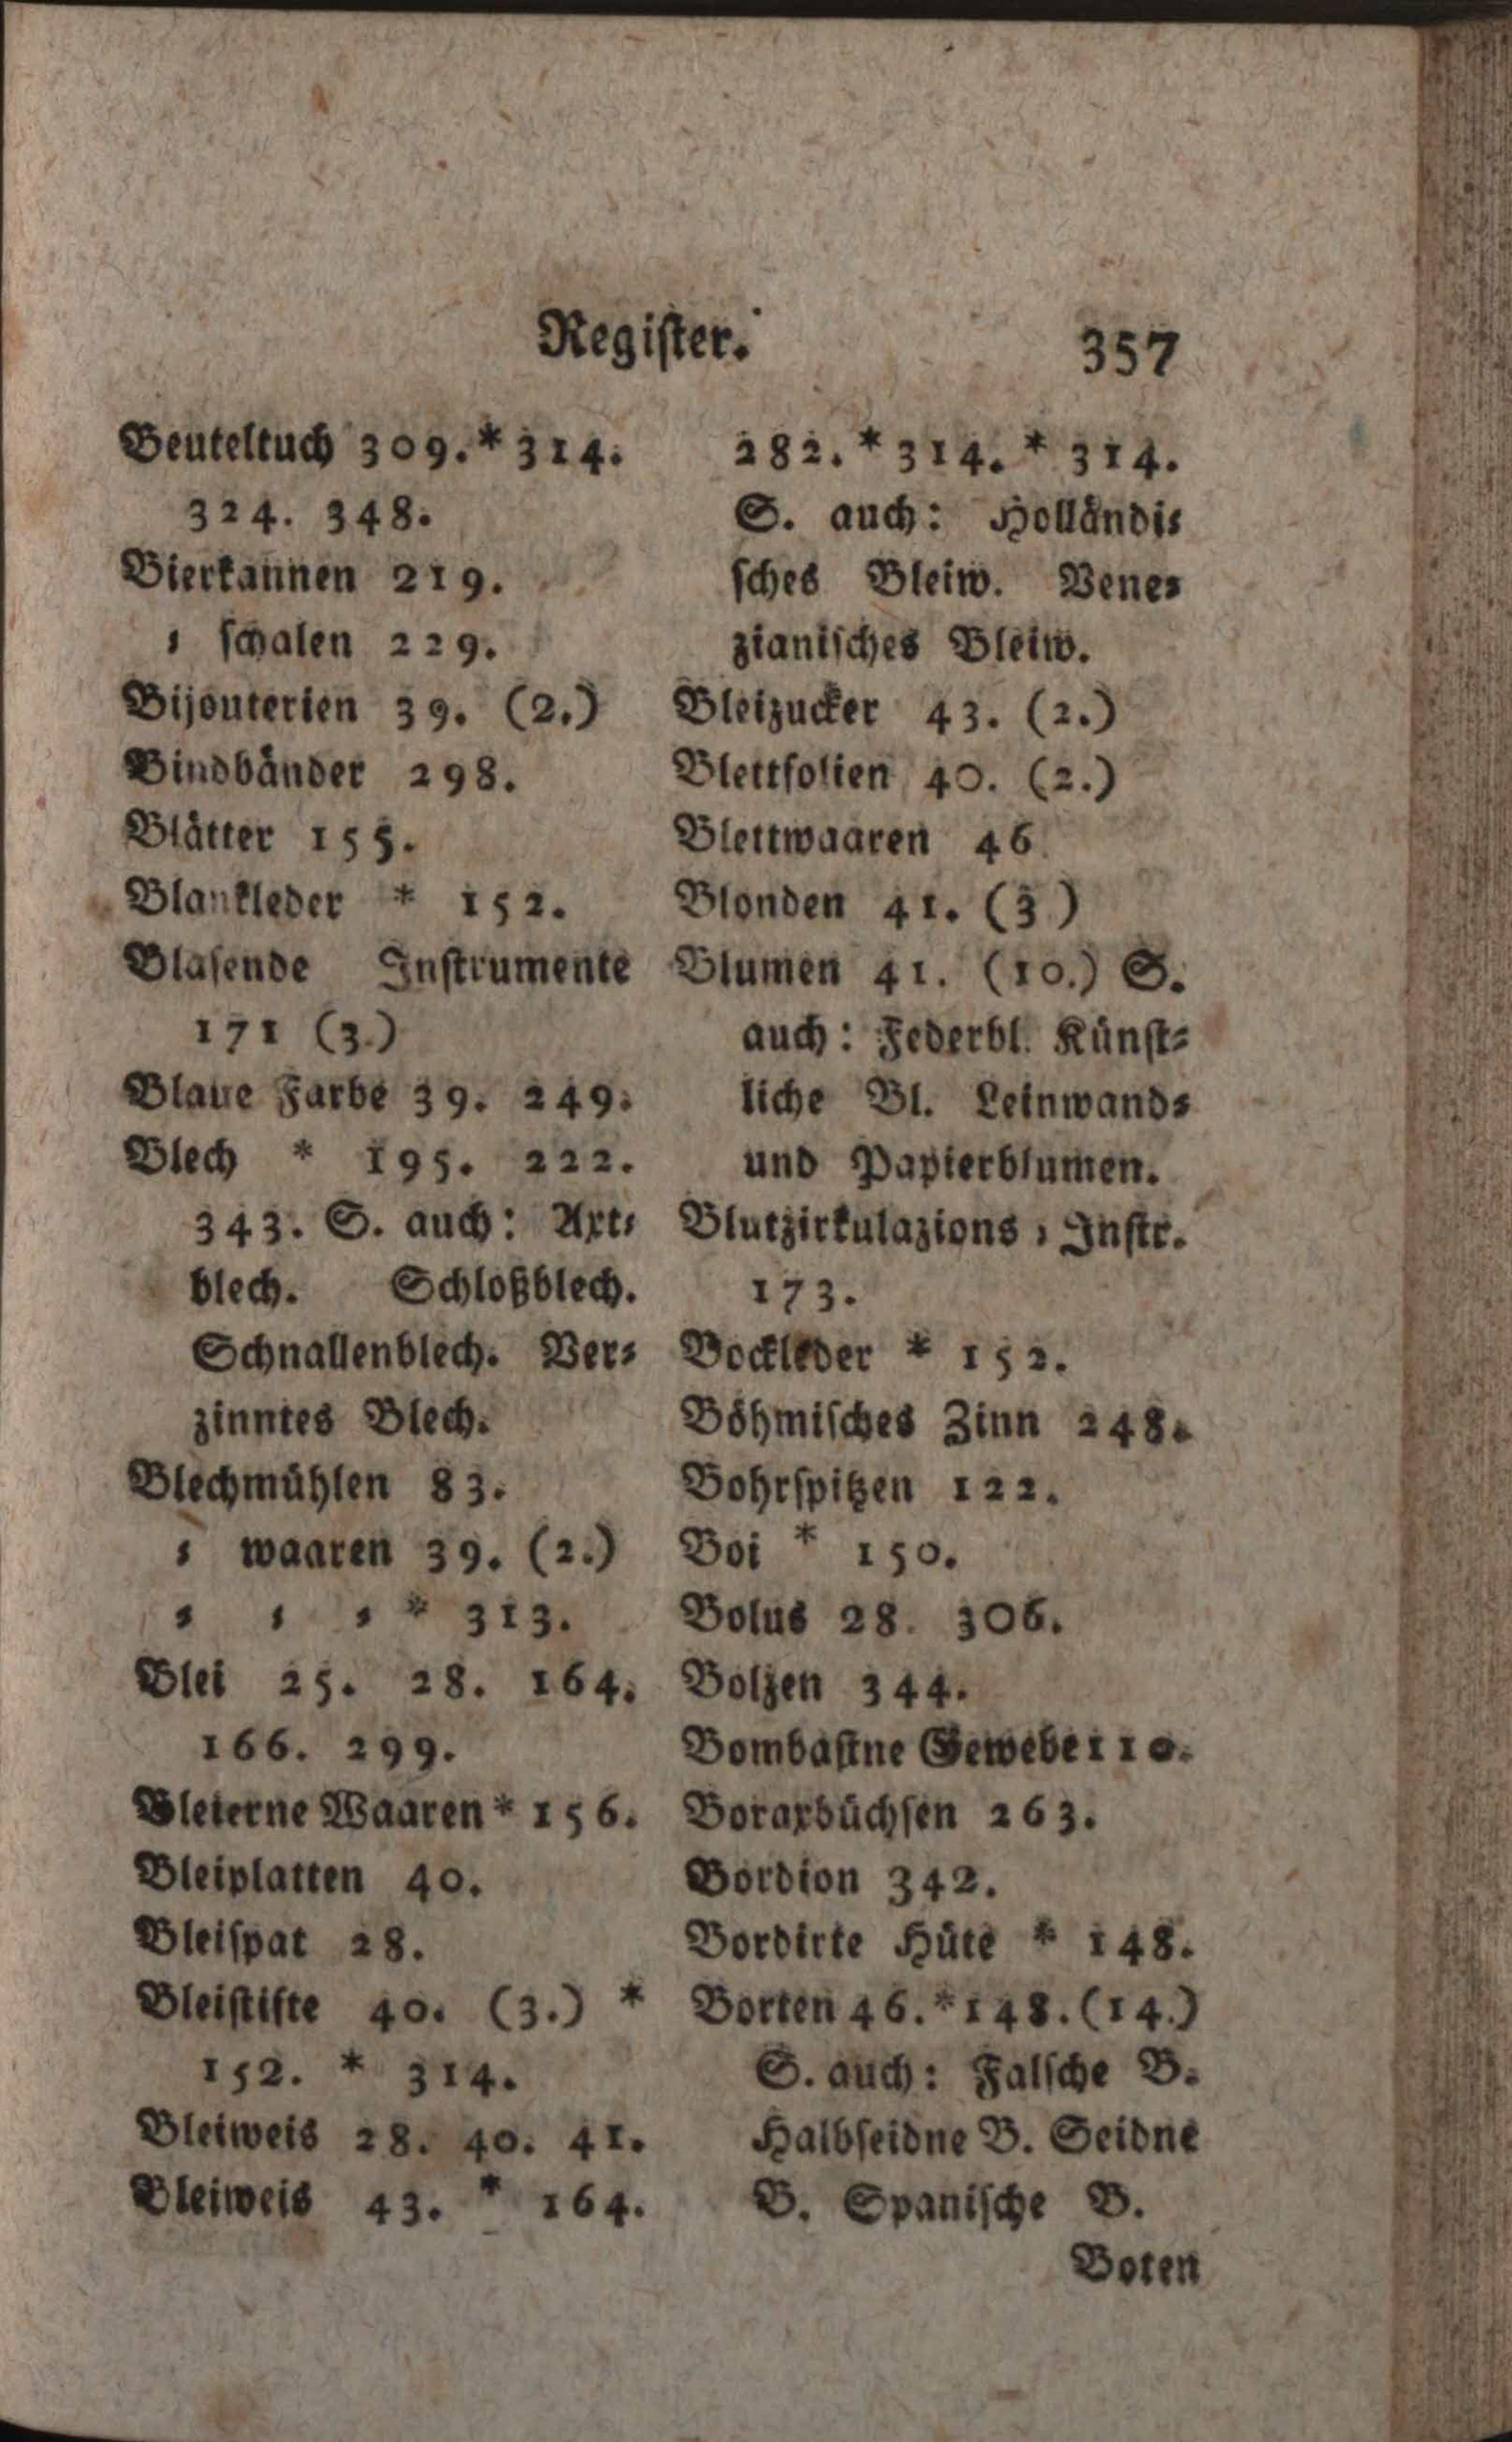 Register.
357
Beuteltuch 309.* 314.
324. 348.
Bierkannen 219.
⸗ schalen 229.
Bijouterien 39. (2.)
Bindbänder 298.
Blätter 155.
Blankleder * 152.
Blasende Instrumente
171 (3.)
Blaue Farbe 39. 249.
Blech * 195. 222.
343. S. auch: Axt⸗
blech. Schloßblech.
Schnallenblech. Ver⸗
zinntes Blech.
Blechmühlen 83.
⸗ waaren 39. (2.)
⸗ ⸗ ⸗ * 313.
Blei 25. 28. 164.
166. 299.
Bleierne Waaren * 156.
Bleiplatten 40.
Bleispat 28.
Bleistifte 40. (3.) *
152. * 314.
Bleiweis 28. 40. 41.
Bleiweis 43. * 164.
282. * 314. * 314.
S. auch: Holländi⸗
sches Bleiw. Vene⸗
zianisches Bleiw.
Bleizucker 43. (2.)
Blettfolien 40. (2.)
Blettwaaren 46.
Blonden 41. (3.)
Blumen 41. (10.) S.
auch: Federbl. Künst⸗
liche Bl. Leinwand⸗
und Papierblumen.
Blutzirkulazions⸗Instr.
173.
Bockleder * 152.
Böhmisches Zinn 248.
Bohrspitzen 122.
Boi * 150.
Bolus 28. 306.
Bolzen 344.
Bombastne Gewebe 110.
Boraxbüchsen 263.
Bordion 342.
Bordirte Hüte * 148.
Borten 46. * 148. (14.)
S. auch: Falsche B.
Halbseidne B. Seidne
B. Spanische B.
Boten